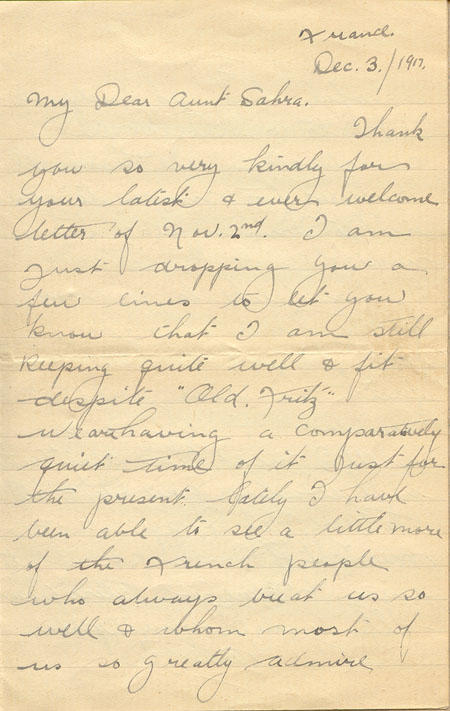 France.
Dec. 3./1917.
My Dear Aunt Sahra.
Thank
you so very kindly for
your latest & ever welcome
letter of Nov. 2nd. I am
just dropping you a
few lines to let you
know that I am still
keeping quite well & fit
despite "Old. Fritz".
We are having a comparatively
quiet time of it just for
the present. Lately I have
been able to see a little more
of the French people
who always treat us so
well & whom most of
us so greatly admire